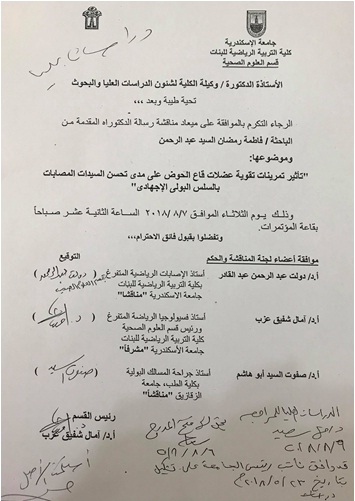 دراسات عليا
جامعة الإسكندرية
كلية التربية الرياضية للبنات
قسم العلوم الصحية
الأستاذة الدكتورة / وكيلة الكلية لشئون الدراسات العليا والبحوث
تحية طيبة وبعد ،،،
الرجاء التكرم بالموافقة على ميعاد مناقشة رسالة الدكتوراه المقدمة من
الباحثة / فاطمة رمضان السيد عبد الرحمن
وموضوعها:
"تأثير تمرينات تقوية عضلات قاع الحوض على مدى تحسن السيدات المصابات
بالسلس البولى الإجهادى"
وذلك يوم الثلاثاء الموافق ٢٠١٨/٨/٧ الساعة الثانية عشر صباحاً
بقاعة المؤتمرات.
وتفضلوا بقبول فائق الاحترام،،،
موافقة أعضاء لجنة المناقشة والحكم
التوقيع
أ.د/ دولت عبد الرحمن عبد القادر
أستاذ الإصابات الرياضية المتفرغ
بكلية التربية الرياضية للبنات
جامعة الاسكندرية "مناقشاً"
أ.د/ آمال شفيق عزب
أستاذ فسيولوجيا الرياضة المتفرغ
ورئيس قسم العلوم الصحية
كلية التربية الرياضية للبنات
جامعة الأسكندرية "مشرفاً"
أ.د/ صفوت السيد أبو هاشم
أستاذ جراحة المسالك البولية
بكلية الطب، جامعة
الزقازيق "مناقشاً"
رئيس القسم
أ.د/ آمال شفيق عزب